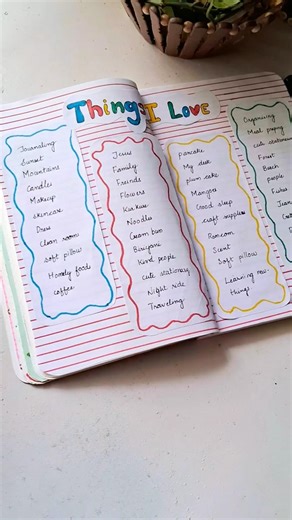 Things I Love
Journaling
Sunset
Mountains
Candles
Makeup
skincare
Dress
Clean room
Soft pillow
Homely foods
coffee
Jesus
Family
Friends
Flowers
Kurkure
Noodles
Cream bun
Biriyani
Kind people
cute stationery
Night ride
Traveling
pancake
My desk
plum cake
Mangoes
Good sleep
craft supplies
Romcom
Scent
Soft pillow
Learning new
things
Organizing
Meal preping
cute stationery
Beach
people